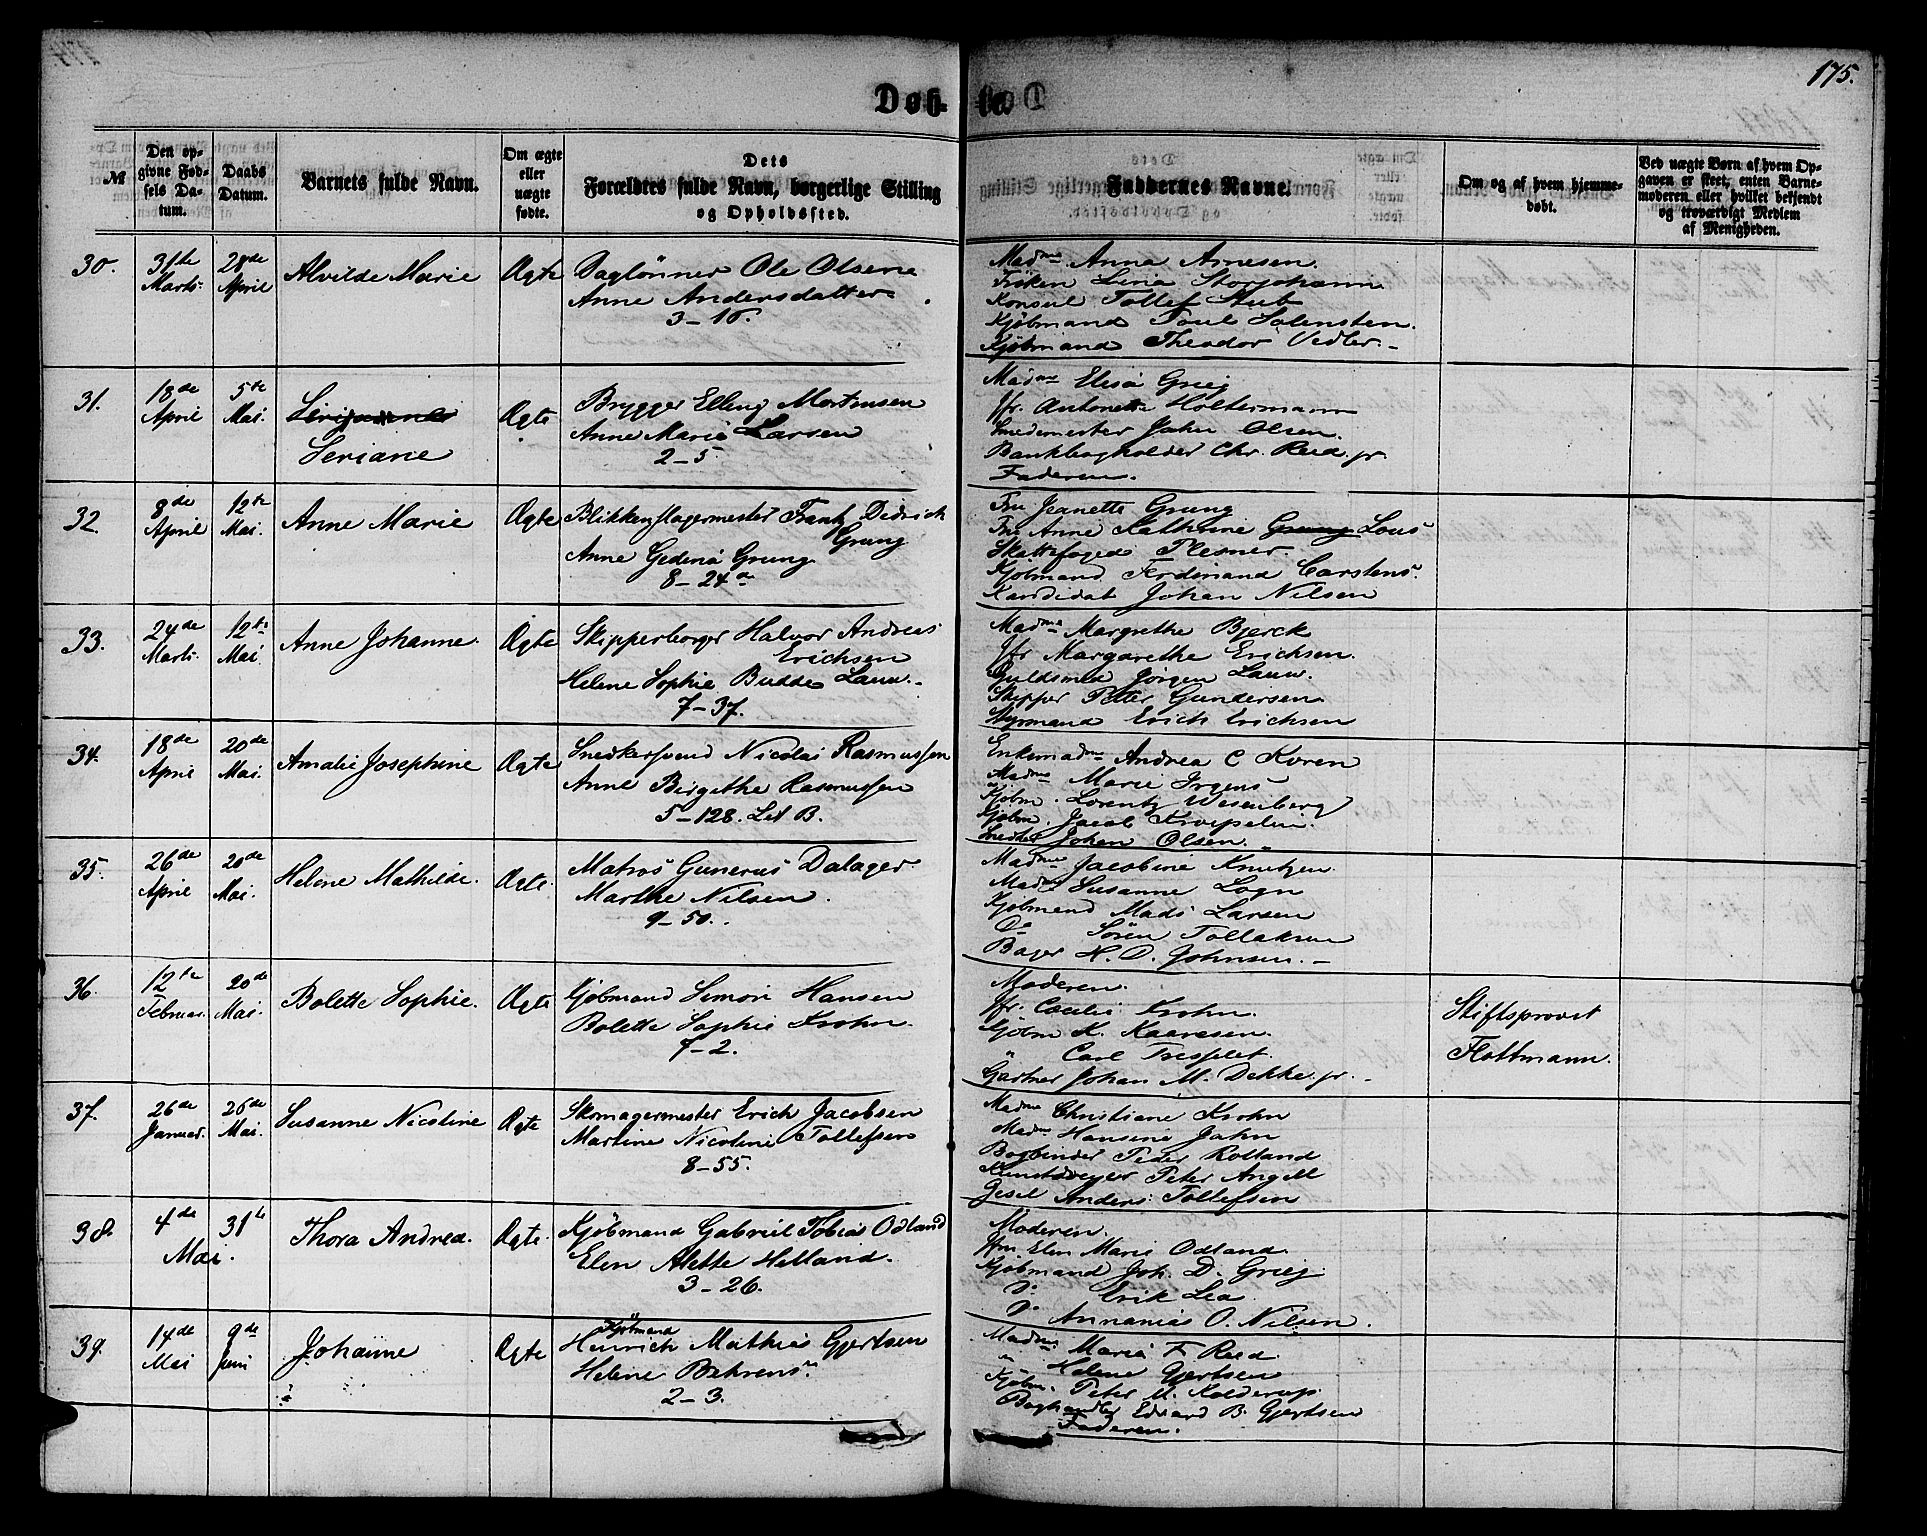 175.
Døb- te.
№
Den op-
givne Fød-
sels Da-
tum.
Daabs
Datum.
Barnets fulde Navn.
Om ægte
eller
uægte
fødte.
Dets
Forældres fulde Navn, borgerlige Stilling
og Opholdssted.
Faddernes Navne.
Om og af hvem hjemme-
døbt.
Ved uægte Børn af hvem Op-
gaven er skeet, enten Barne-
moderen eller hvilket bekjendt
og troværdigt Medlem
af Menigheden.
30. 31te Marts. 28de April Alvilde Marie Ægte Daglönner Ole Olsen
Anne Andersdatter
3-16.
Madme Anna Arnesen.
Frøken Lina Storjohann.
Konsul Tollef Stub
Kjøbmand Poul
Kjøbmand Theodor Vedler.-
31. 18de April 5te Mai. Seriane Ægte Brygger Elling Mortensen
Anne Marie Larsen
2-5
Madme Elisa Grieg
Jfr. Antonette Holtermann
Smedemester John Olsen.
Bankbogholder Chr. Reid jr.
Faderen.
32. 8de April 12te Mai. Anne Marie Ægte Blikkenslagermester Frantz Didrich
Grung
Anne Gedina Grung
8-24a
Fru Jeanette Grung
Fru Anne Kathrine Grung Lous
Skattefoged Plesner.
Kjøbmand Ferdinand Carstens.
Kandidat Johan Nilsen
33. 24de Marts. 12te Mai. Anne Johanne. Ægte Skipperborger Halvor Andreas
Erichsen
Helene Sophie Budde Lauw.
7-37.
Madme Margrethe Bjerck
Jfr Margarethe Erichsen.
Guldsmed Jörgen Lauw.
Skipper Peter Gundersen
Styrmand Erich Erichsen
34. 18de April 20de Mai. Amalie Josephine Ægte Snedkersvend Nicolai Rasmussen
Anne Birgithe Rasmussen
5-128. Lit B.
Enkemadme Andrea C Koren
Madme Marie Irgens
Kjøbm. Lorentz Wesenberg
Kjøbm. Jacob Kroepelin.
Snedker Johan Olsen.
35. 26de April 20de Mai. Helene Mathilde. Ægte. Matros Gunerius Dalager
Marthe Nilsen.
9-50.
Madme Jacobine Knutzen
Madme Susanne Logn
Kjøbmand Mads Larsen
Do Søren Tollaksen
Bager H. D. Johnsen.-
36. 12te Februar. 20de Mai. Bolette Sophie. Ægte Kjøbmand Simon Hansen
Bolette Sophie Krohn.
7-2.
Moderen.
Jfr. Cecilie Krohn.
Kjøbm K. Kaaresen.
Carl
Gartner Johan M. Dekke jr.
Stiftsprovst
Flottmann.
37. 26de Januar. 26de Mai. Susanne Nicoline Ægte Skomagermester Erich Jacobsen
Martine Nicoline Tollefsen
8-55.
Madme Christiane Krohn
Madme Hansine Jahn
Bogbinder Peder Rolland
Peter Angell
Gesel Anders Tollefsen
38. 4de Mai. 31te Thora Andrea. Ægte. Kjøbmand Gabriel Tobias Odland
Elen Alette Helland.
3-26.
Moderen.
Jfr. Elen Marie Odland.
Kjøbmand Joh. D. Grieg.
Do Erik Lea
Do Annanias O. Nilsen.
39. 14de Mai 9de Juni Johanne Ægte Kjøbmand
Heinrich Mathias Gjertsen
Helene Behrens.
2-3.
Madme Maria F Reid
" Helene Gjertsen
Kjøbm. Peter M. Kolderup.
Boghandler Edvard B. Gjertsen
Faderen.